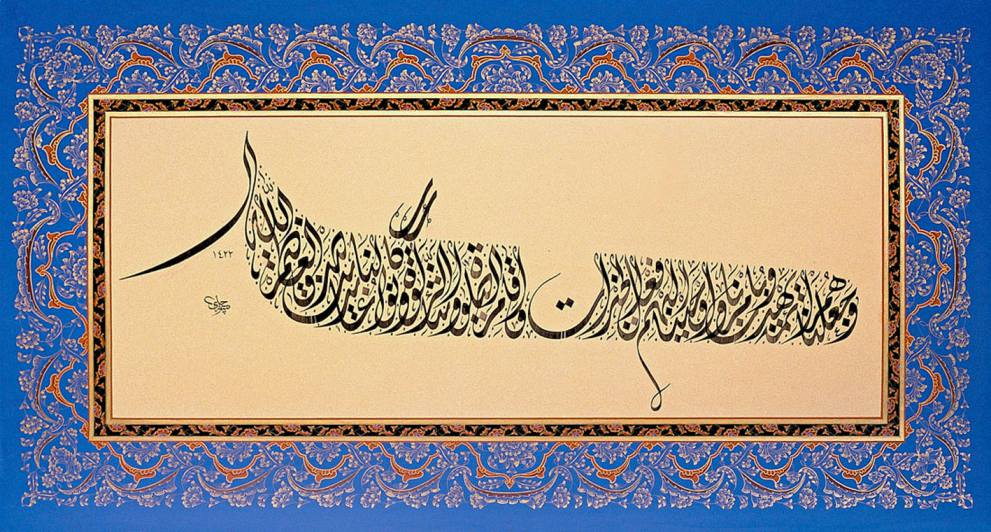 وجعلناهم أئمة يهدون بأمرنا وأوحينا إليهم فعل الخيرات وإقام الصلاة وإيتاء الزكاة وكانوا لنا عابدين صدق الله العظيم
١٤٢٢